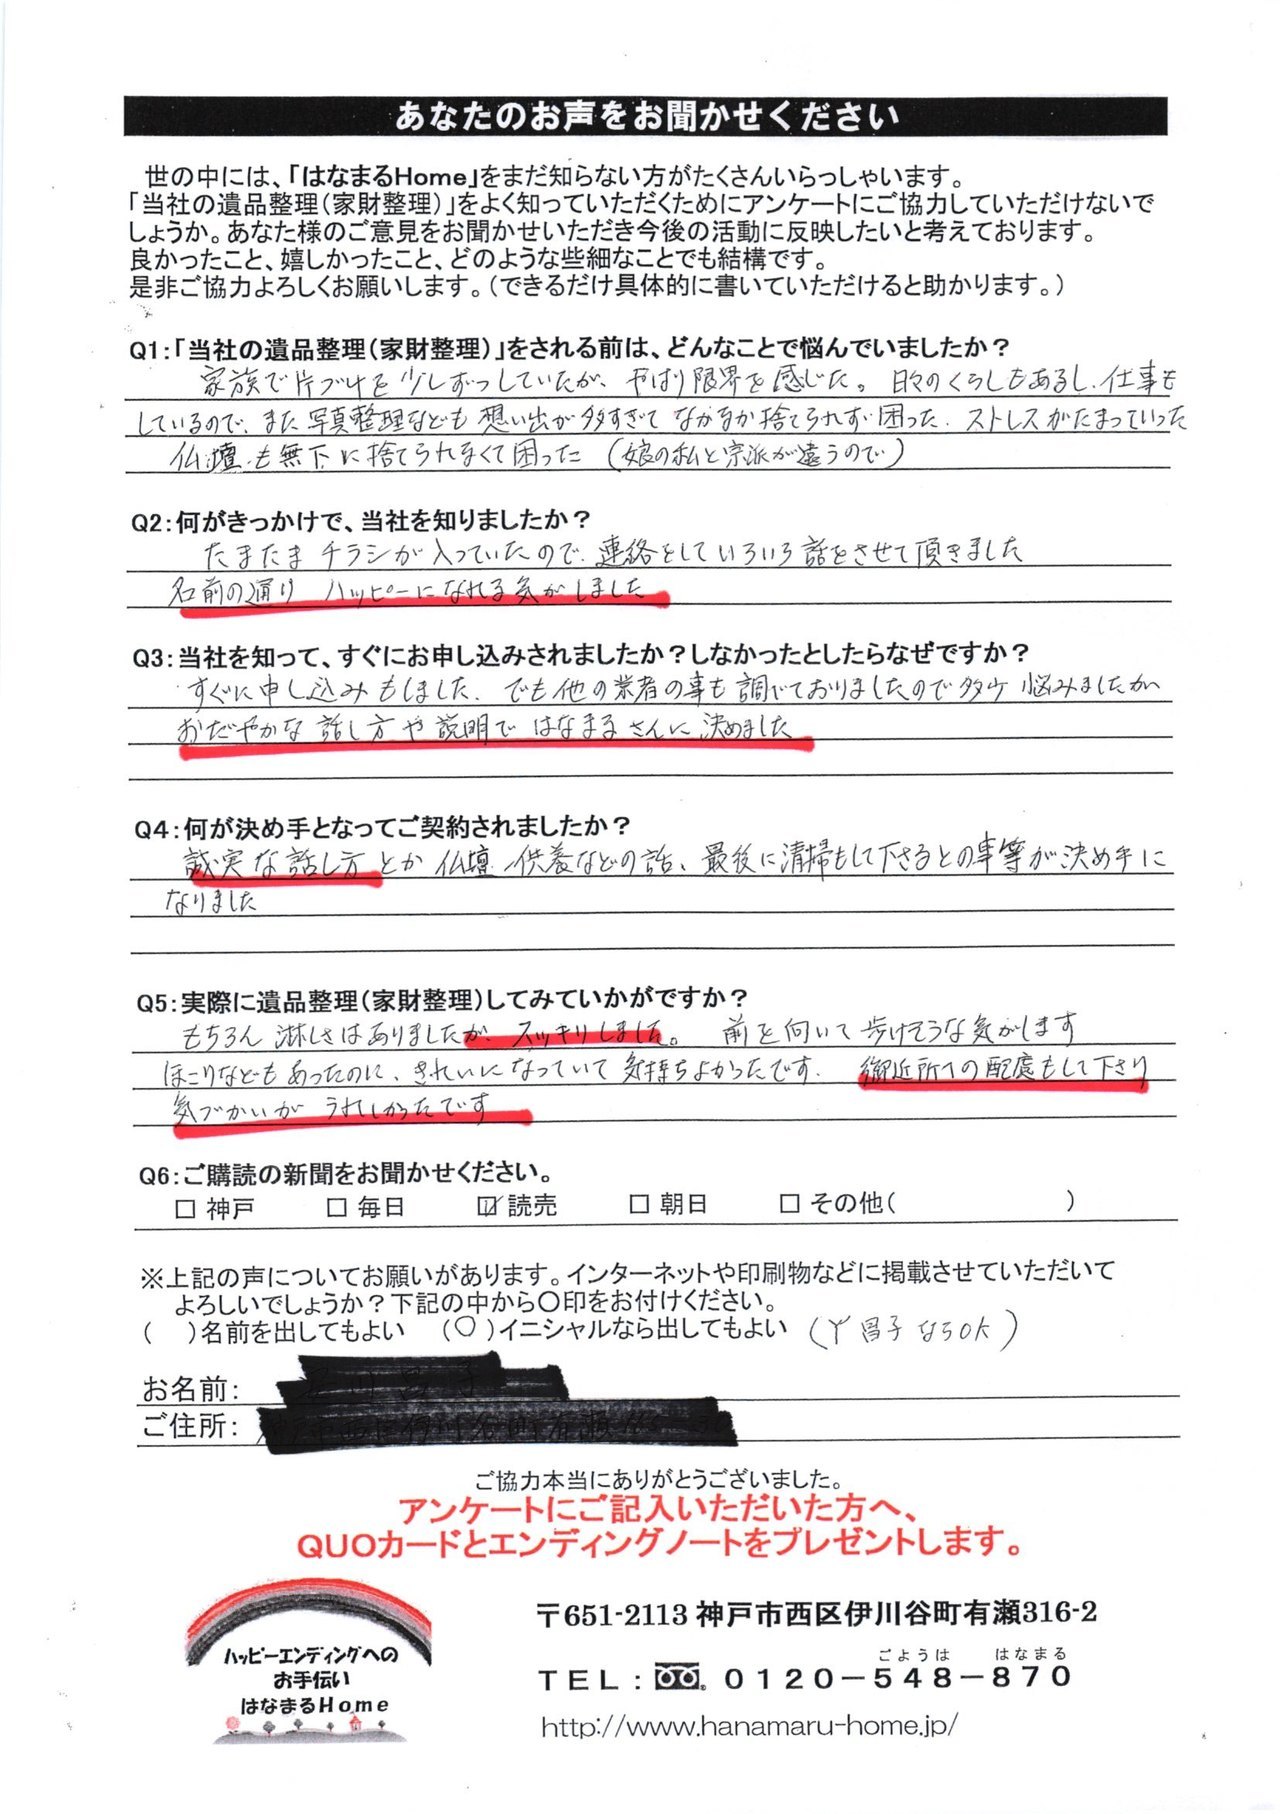 あなたのお声をお聞かせください
世の中には、「はなまるHome」をまだ知らない方がたくさんいらっしゃいます。
「当社の遺品整理(家財整理)」をよく知っていただくためにアンケートにご協力していただけないで
しょうか。あなた様のご意見をお聞かせいただき今後の活動に反映したいと考えております。
良かったこと、嬉しかったこと、どのような些細なことでも結構です。
是非ご協力よろしくお願いします。(できるだけ具体的に書いていただけると助かります。)
Q1:「当社の遺品整理(家財整理)」をされる前は、どんなことで悩んでいましたか?
家族で片づけを少しずつしていたが、やはり限界を感じた。日々のくらしもあるし、仕事も
しているので、また写真整理なども想い出が多すぎてなかなか捨てられず困った、ストレスがたまっていった
仏壇も無下に捨てられなくて困った(娘の私と宗派が違うので)
Q2:何がきっかけで、当社を知りましたか?
たまたまチラシが入っていたので、連絡をしていろいろ話をさせて頂きました
名前の通りハッピーになれる気がしました
Q3:当社を知って、すぐにお申し込みされましたか?しなかったとしたらなぜですか?
すぐに申し込みもしました、でも他の業者の事も調べておりましたので多少悩みましたが
おだやかな話し方や説明ではなまるさんに決めました
Q4:何が決め手となってご契約されましたか?
誠実な話し方とか仏壇供養などの話、最後に清掃もして下さるとの事等が決め手に
なりました
Q5:実際に遺品整理(家財整理)してみていかがですか?
もちろん淋しさはありましたが、スッキリしました。前を向いて歩けそうな気がします
ほこりなどもあったのに、きれいになっていて気持ちよかったです、御近所への配慮もして下さり
気づかいがうれしかったです
Q6:ご購読の新聞をお聞かせください。
□ 神戸 □ 毎日 ☑ 読売 □ 朝日 □ その他( )
※上記の声についてお願いがあります。インターネットや印刷物などに掲載させていただいて
よろしいでしょうか?下記の中から〇印をお付けください。
( )名前を出してもよい (〇)イニシャルなら出してもよい (Y 昌子ならOK)
お名前:
ご住所:
ご協力本当にありがとうございました。
アンケートにご記入いただいた方へ、
QUOカードとエンディングノートをプレゼントします。
ハッピーエンディングへの
お手伝い
はなまるHome
〒651-2113 神戸市西区伊川谷町有瀬316-2
ごようは はなまる
TEL: 0120-548-870
http://www.hanamaru-home.jp/